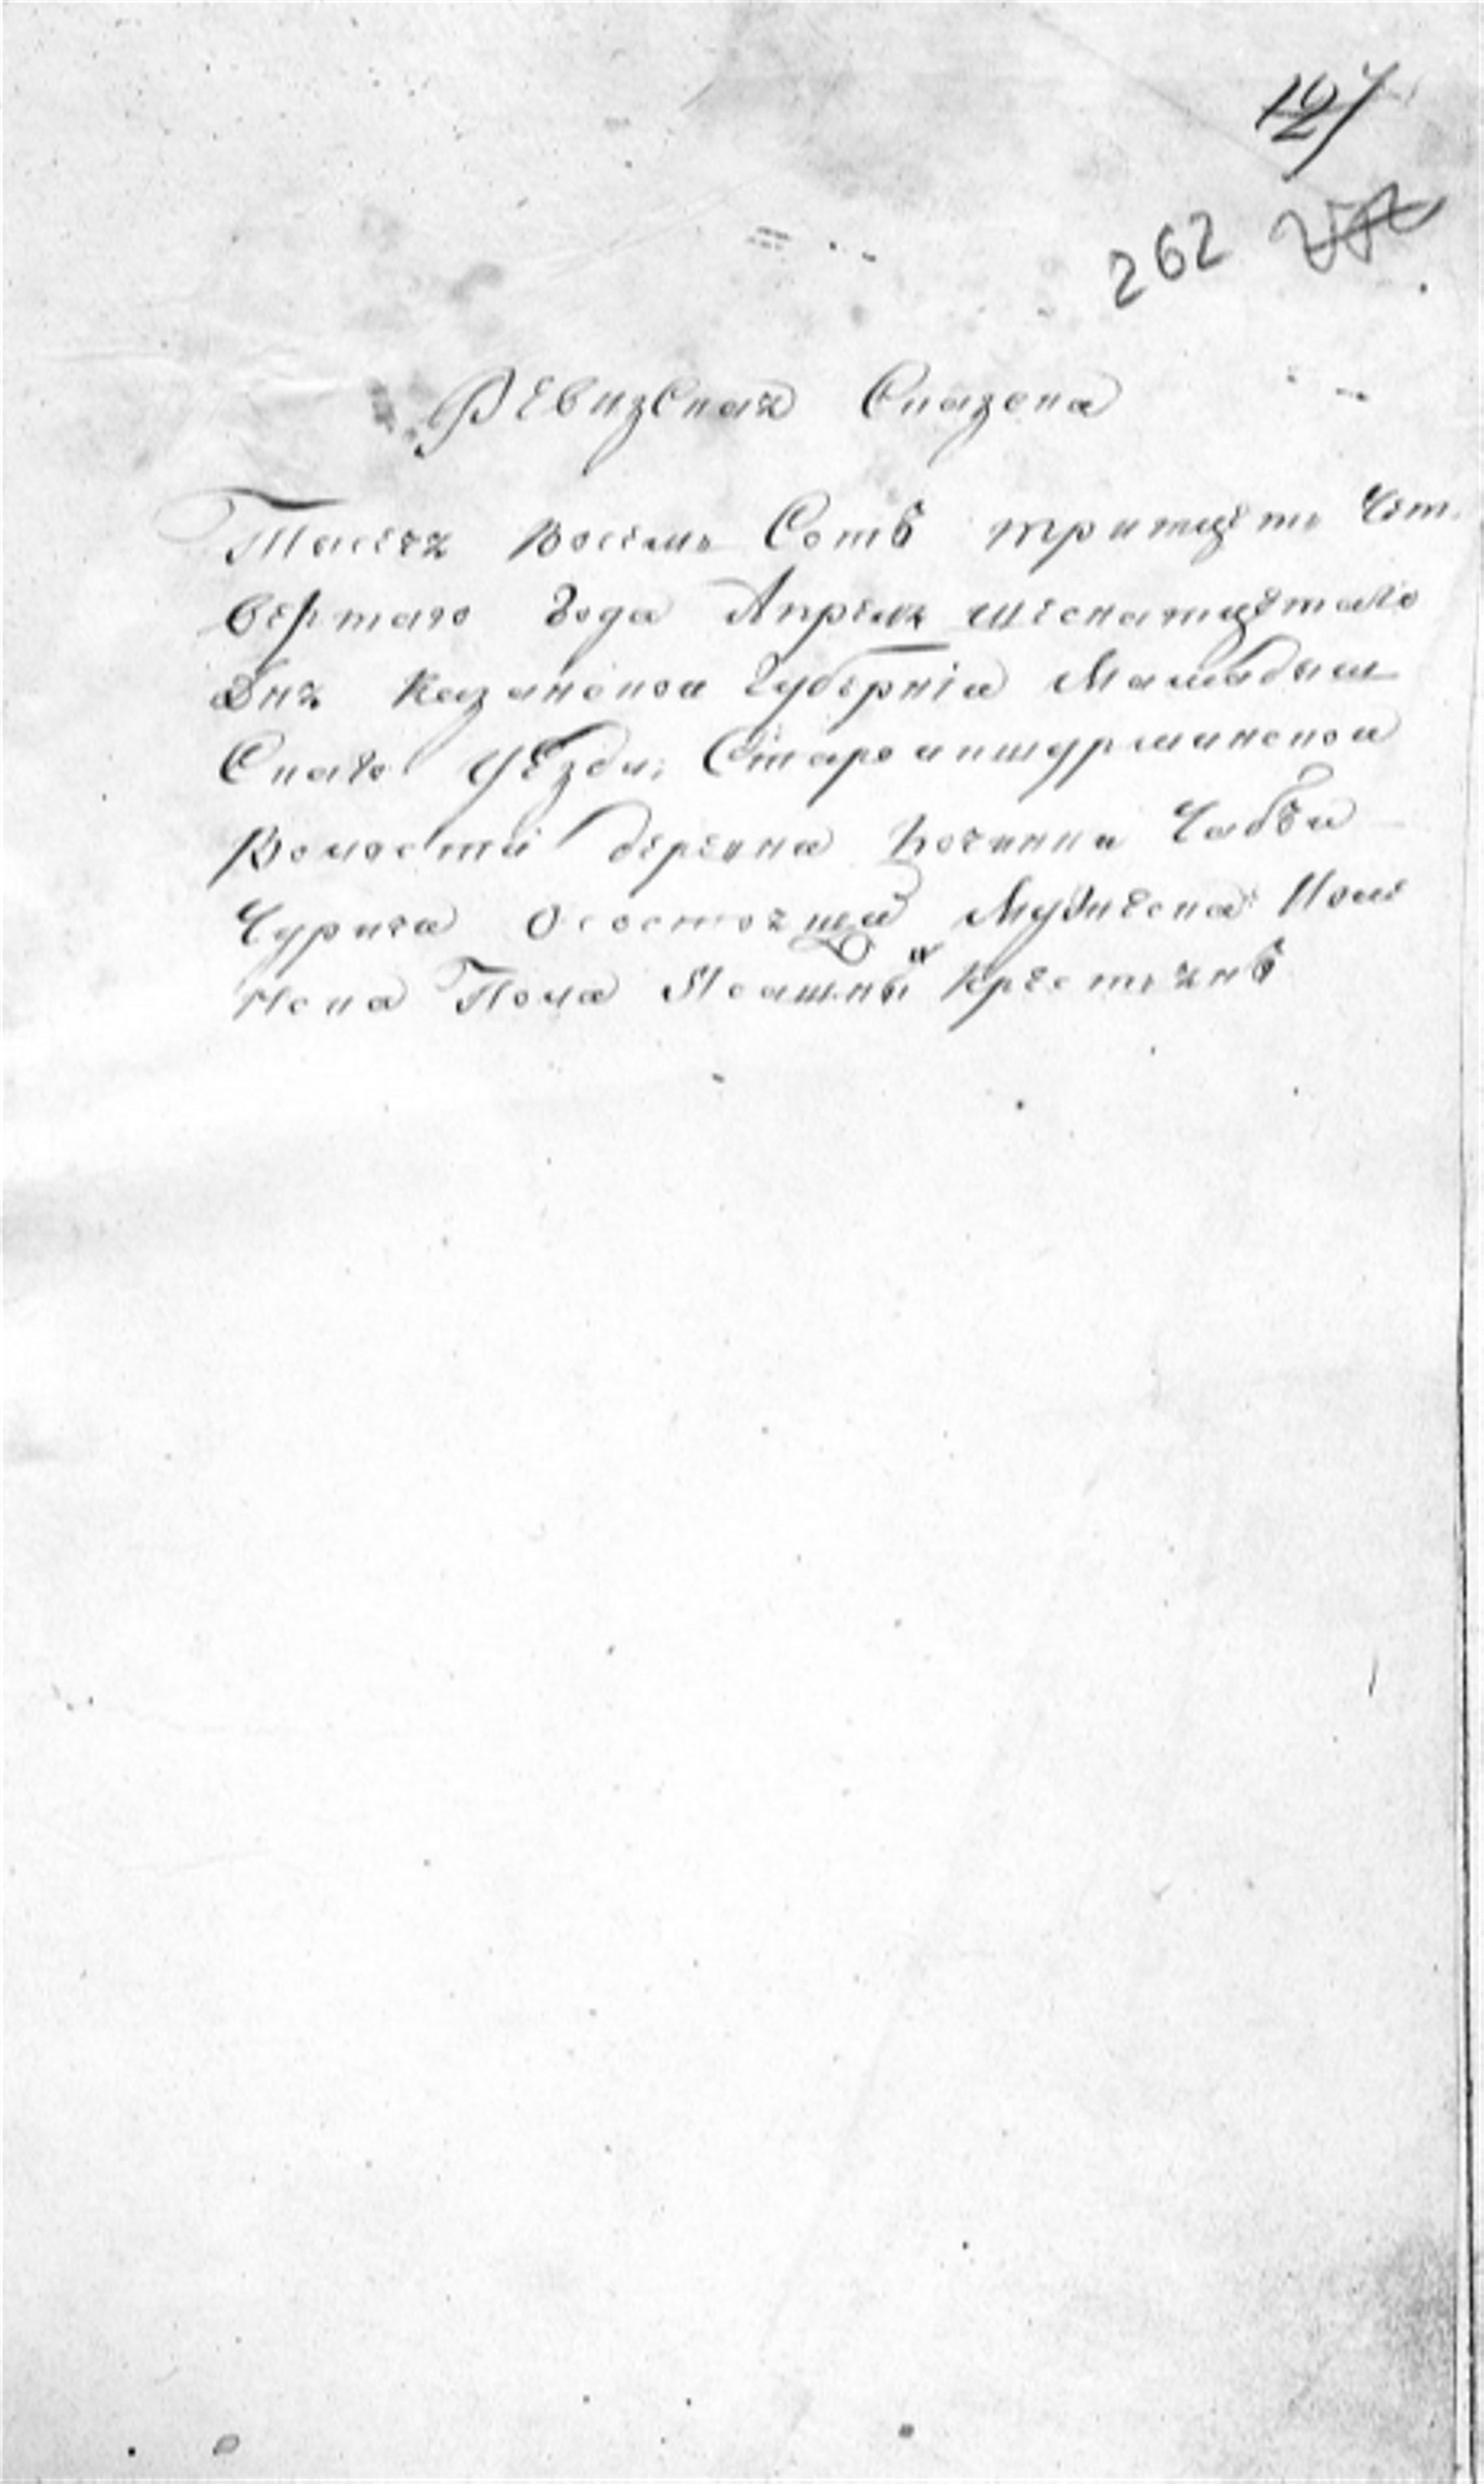 127
262
Ревизская Сказка
Тысяча восемь Сотъ тритцеть Чет
вертаго Года Апреля шеснатцетаго
Дня Казанской Губернiи Мамадыш
Скаго Уѣзда, Староипшурминской
Волости деревна Починки Чабъи
Чурича О состоящи Мужеска И же
нска Пола Ясашны крестьянъ